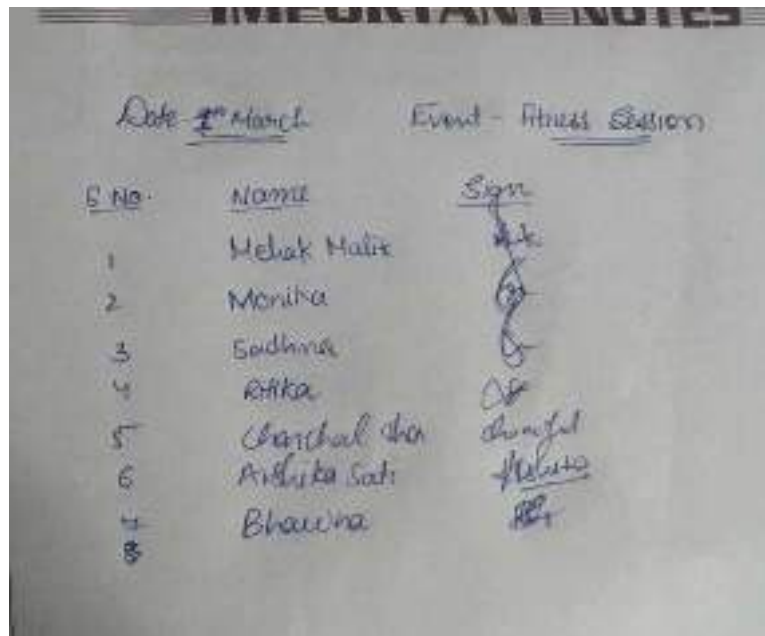 IMPORTANT NOTES
Date - 1st March Event - Fitness Session
S No. Name Sign
1 Mehak Malik
2 Monika
3 Sadhna
4 Ritika
5 Chanchal
6 Sati
7 Bhawna
8